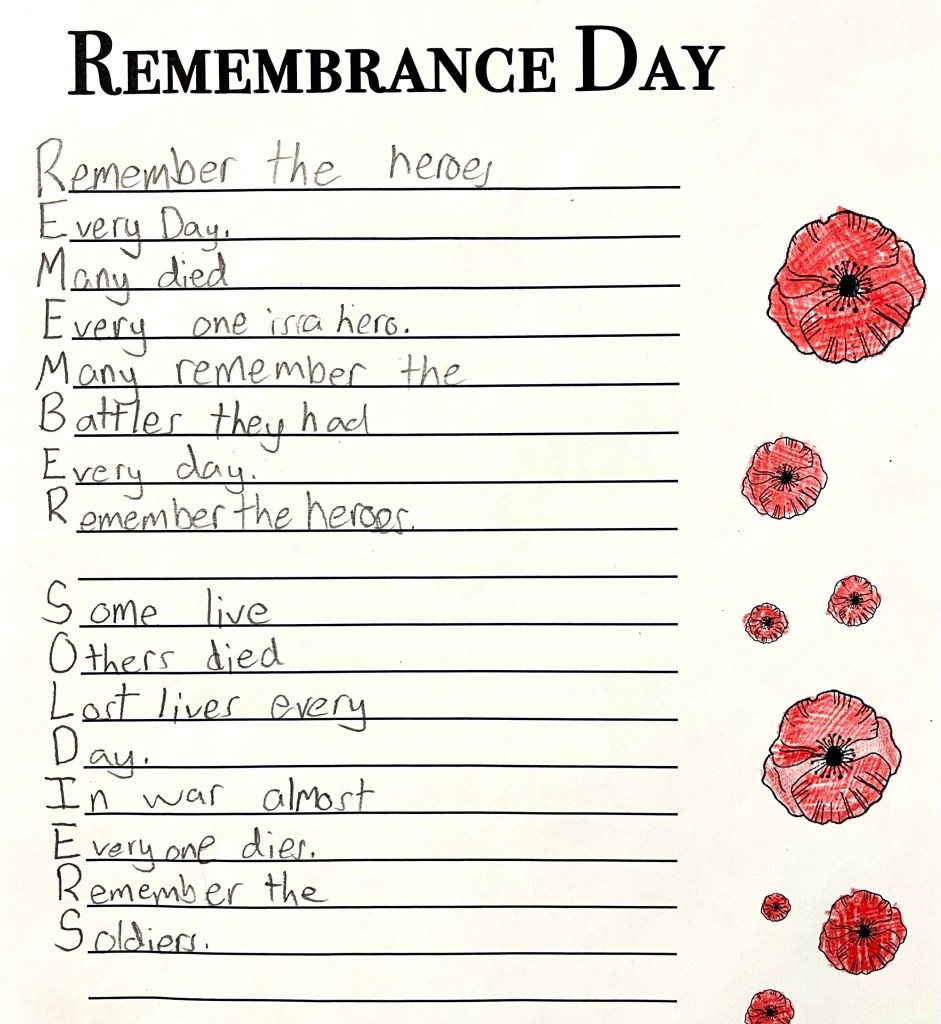 REMEMBRANCE DAY
Remember the heroes
Every Day.
Many died
Every one is a hero.
Many remember the
Battles they had
Every day.
Remember the heroes.
Some live
Others died
Lost lives every
Day.
In war almost
Everyone dies.
Remember the
Soldiers.